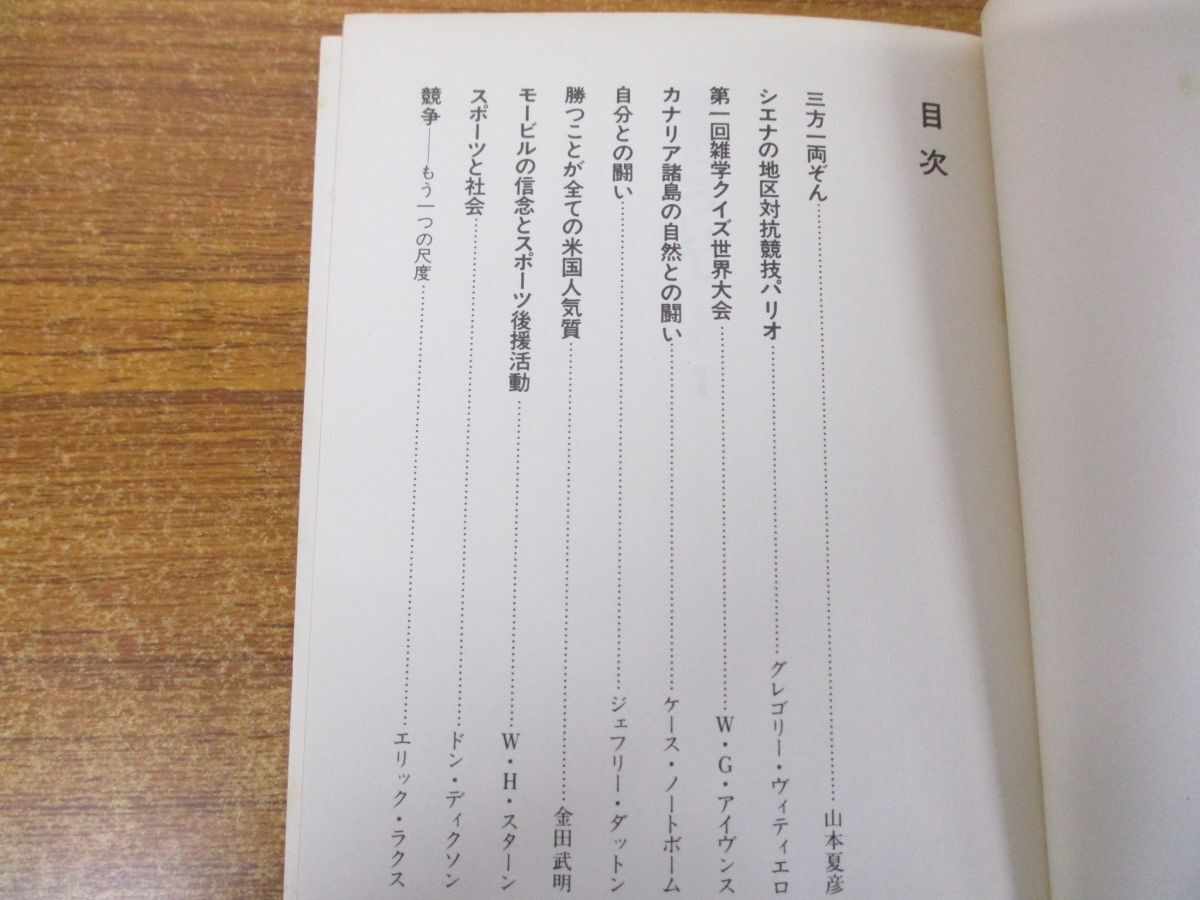 目次
三方一両ぞん……山本夏彦
シエナの地区対抗競技パリオ……グレゴリー・ヴィティエロ
第一回雑学クイズ世界大会……W・G・アイヴンス
カナリア諸島の自然との闘い……ケース・ノートボーム
自分との闘い……ジェフリー・ダットン
勝つことが全ての米国人気質……金田武明
モービルの信念とスポーツ後援活動……W・H・スターン
スポーツと社会……ドン・ディクソン
競争――もう一つの尺度……エリック・ラクス